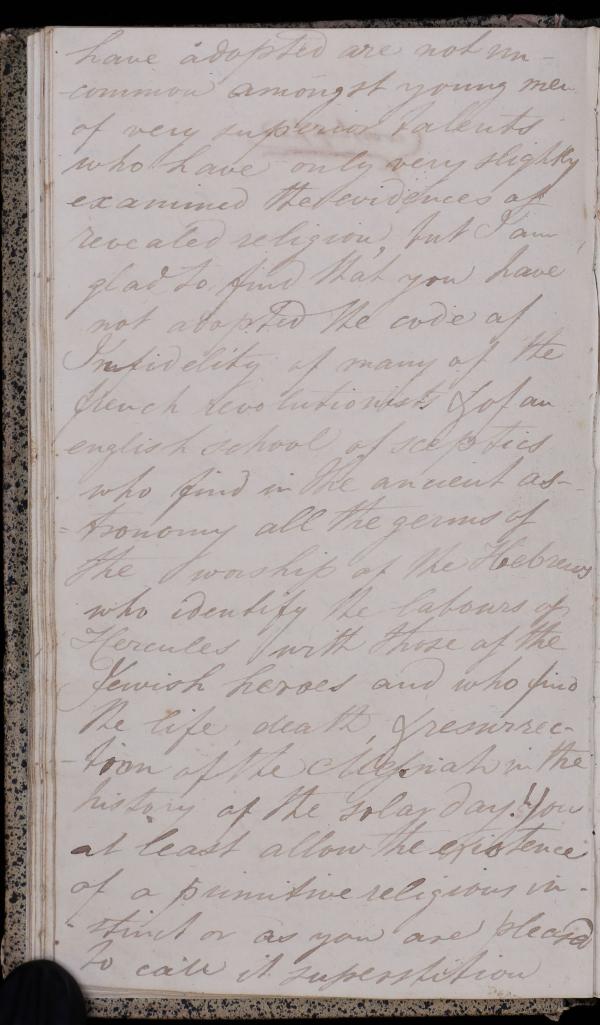 have adopted are not un-
-common amongst young men
of very superior talents
who have only very slightly
examined the evidences of
revealed religion, but I am
glad to find that you have
not adopted the code of
Infidelity of many of the
french revolutionists & of an
english school of sceptics
who find in the ancient as-
-tronomy all the germs of
the worship of the Hebrews
who identify the labours of
Hercules with those of the
Jewish heroes and who find
the life, death, & resurrec-
-tion of the Messiah in the
history of the solar day!! You
at least allow the existence
of a primitive religious in-
-stinct or as you are pleased
to call it superstition